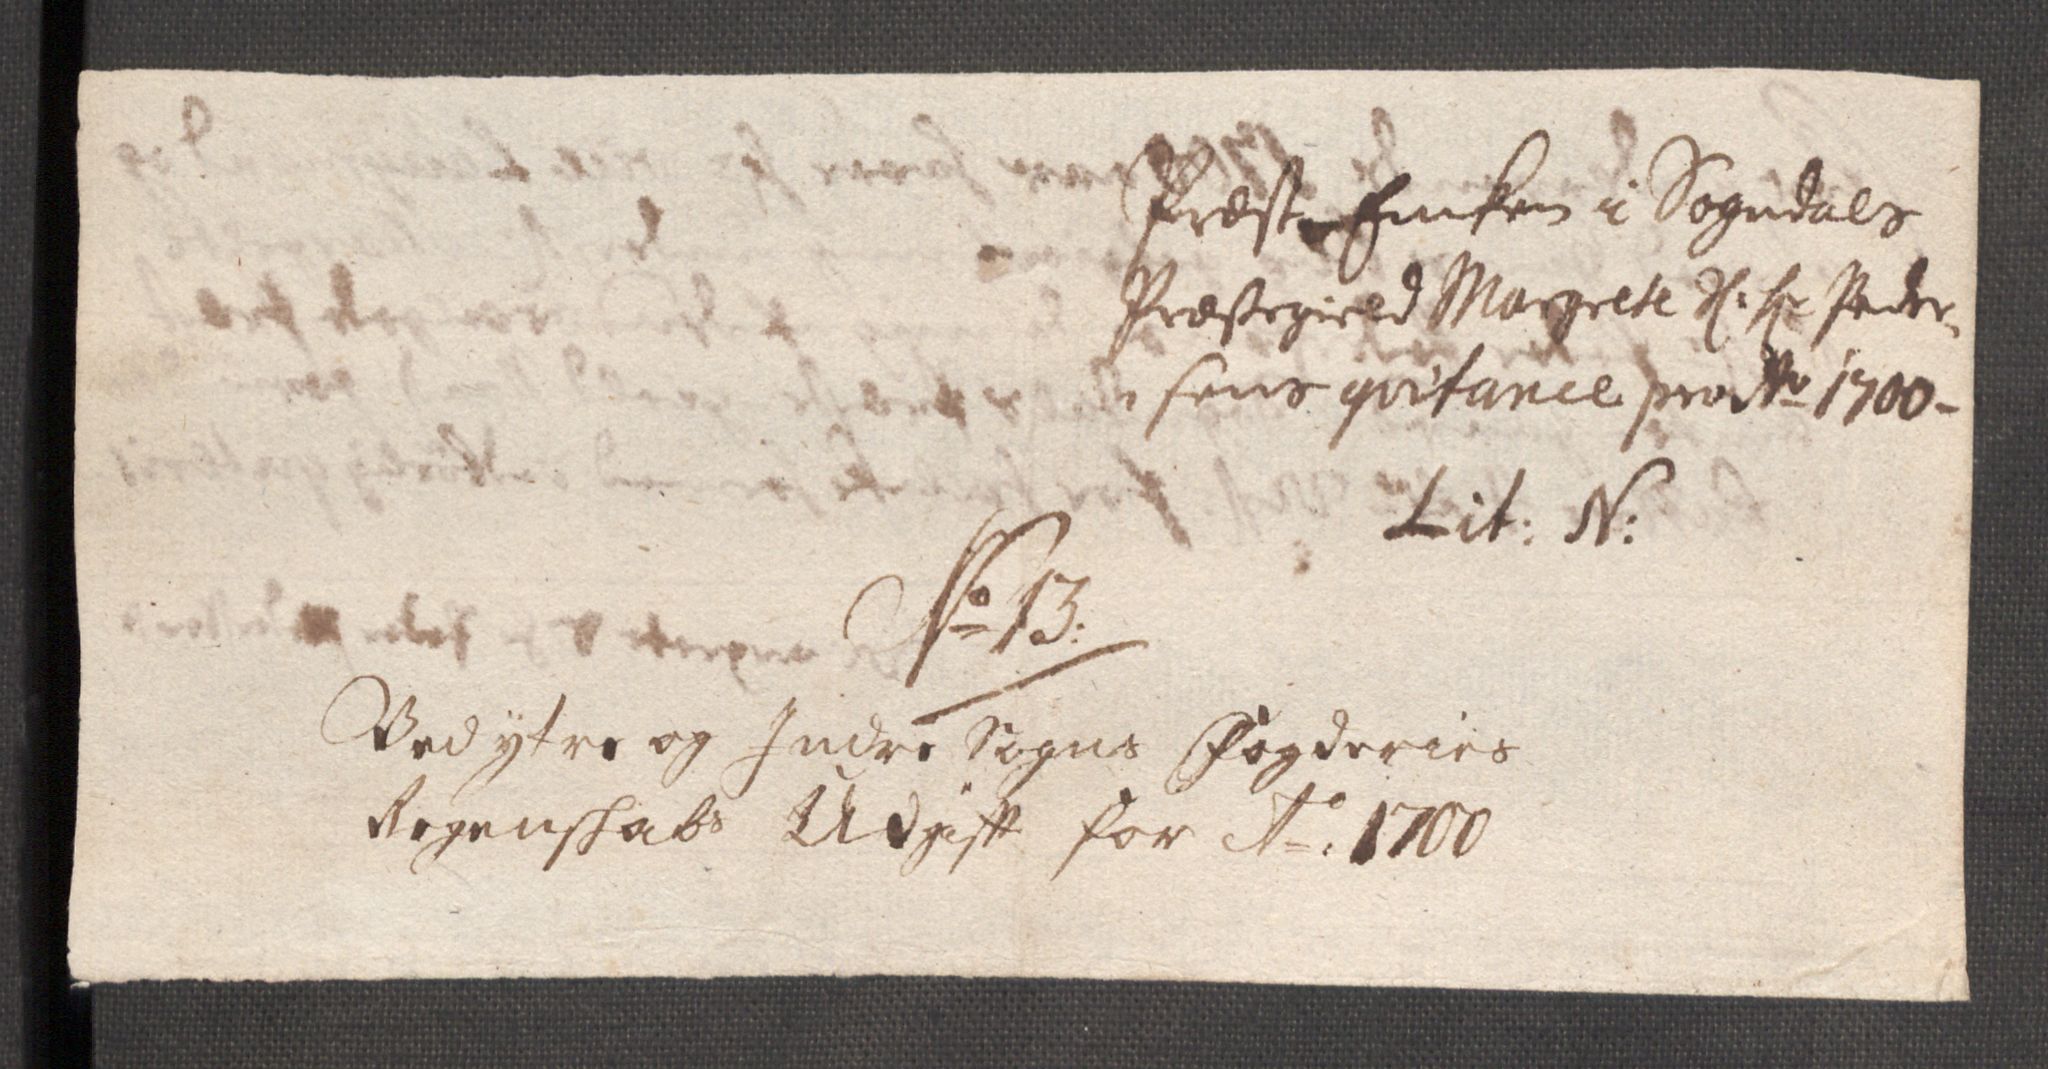 Præste Enken i Sogndals
Præstegield Margrete Sl: Hr Peder-
sens qvitance pro Ao 1700-
Lit: N:
No 13:
Ved ytre og Indre Sogns Fogderies
Regenskabs Udgift for Ao. 1700